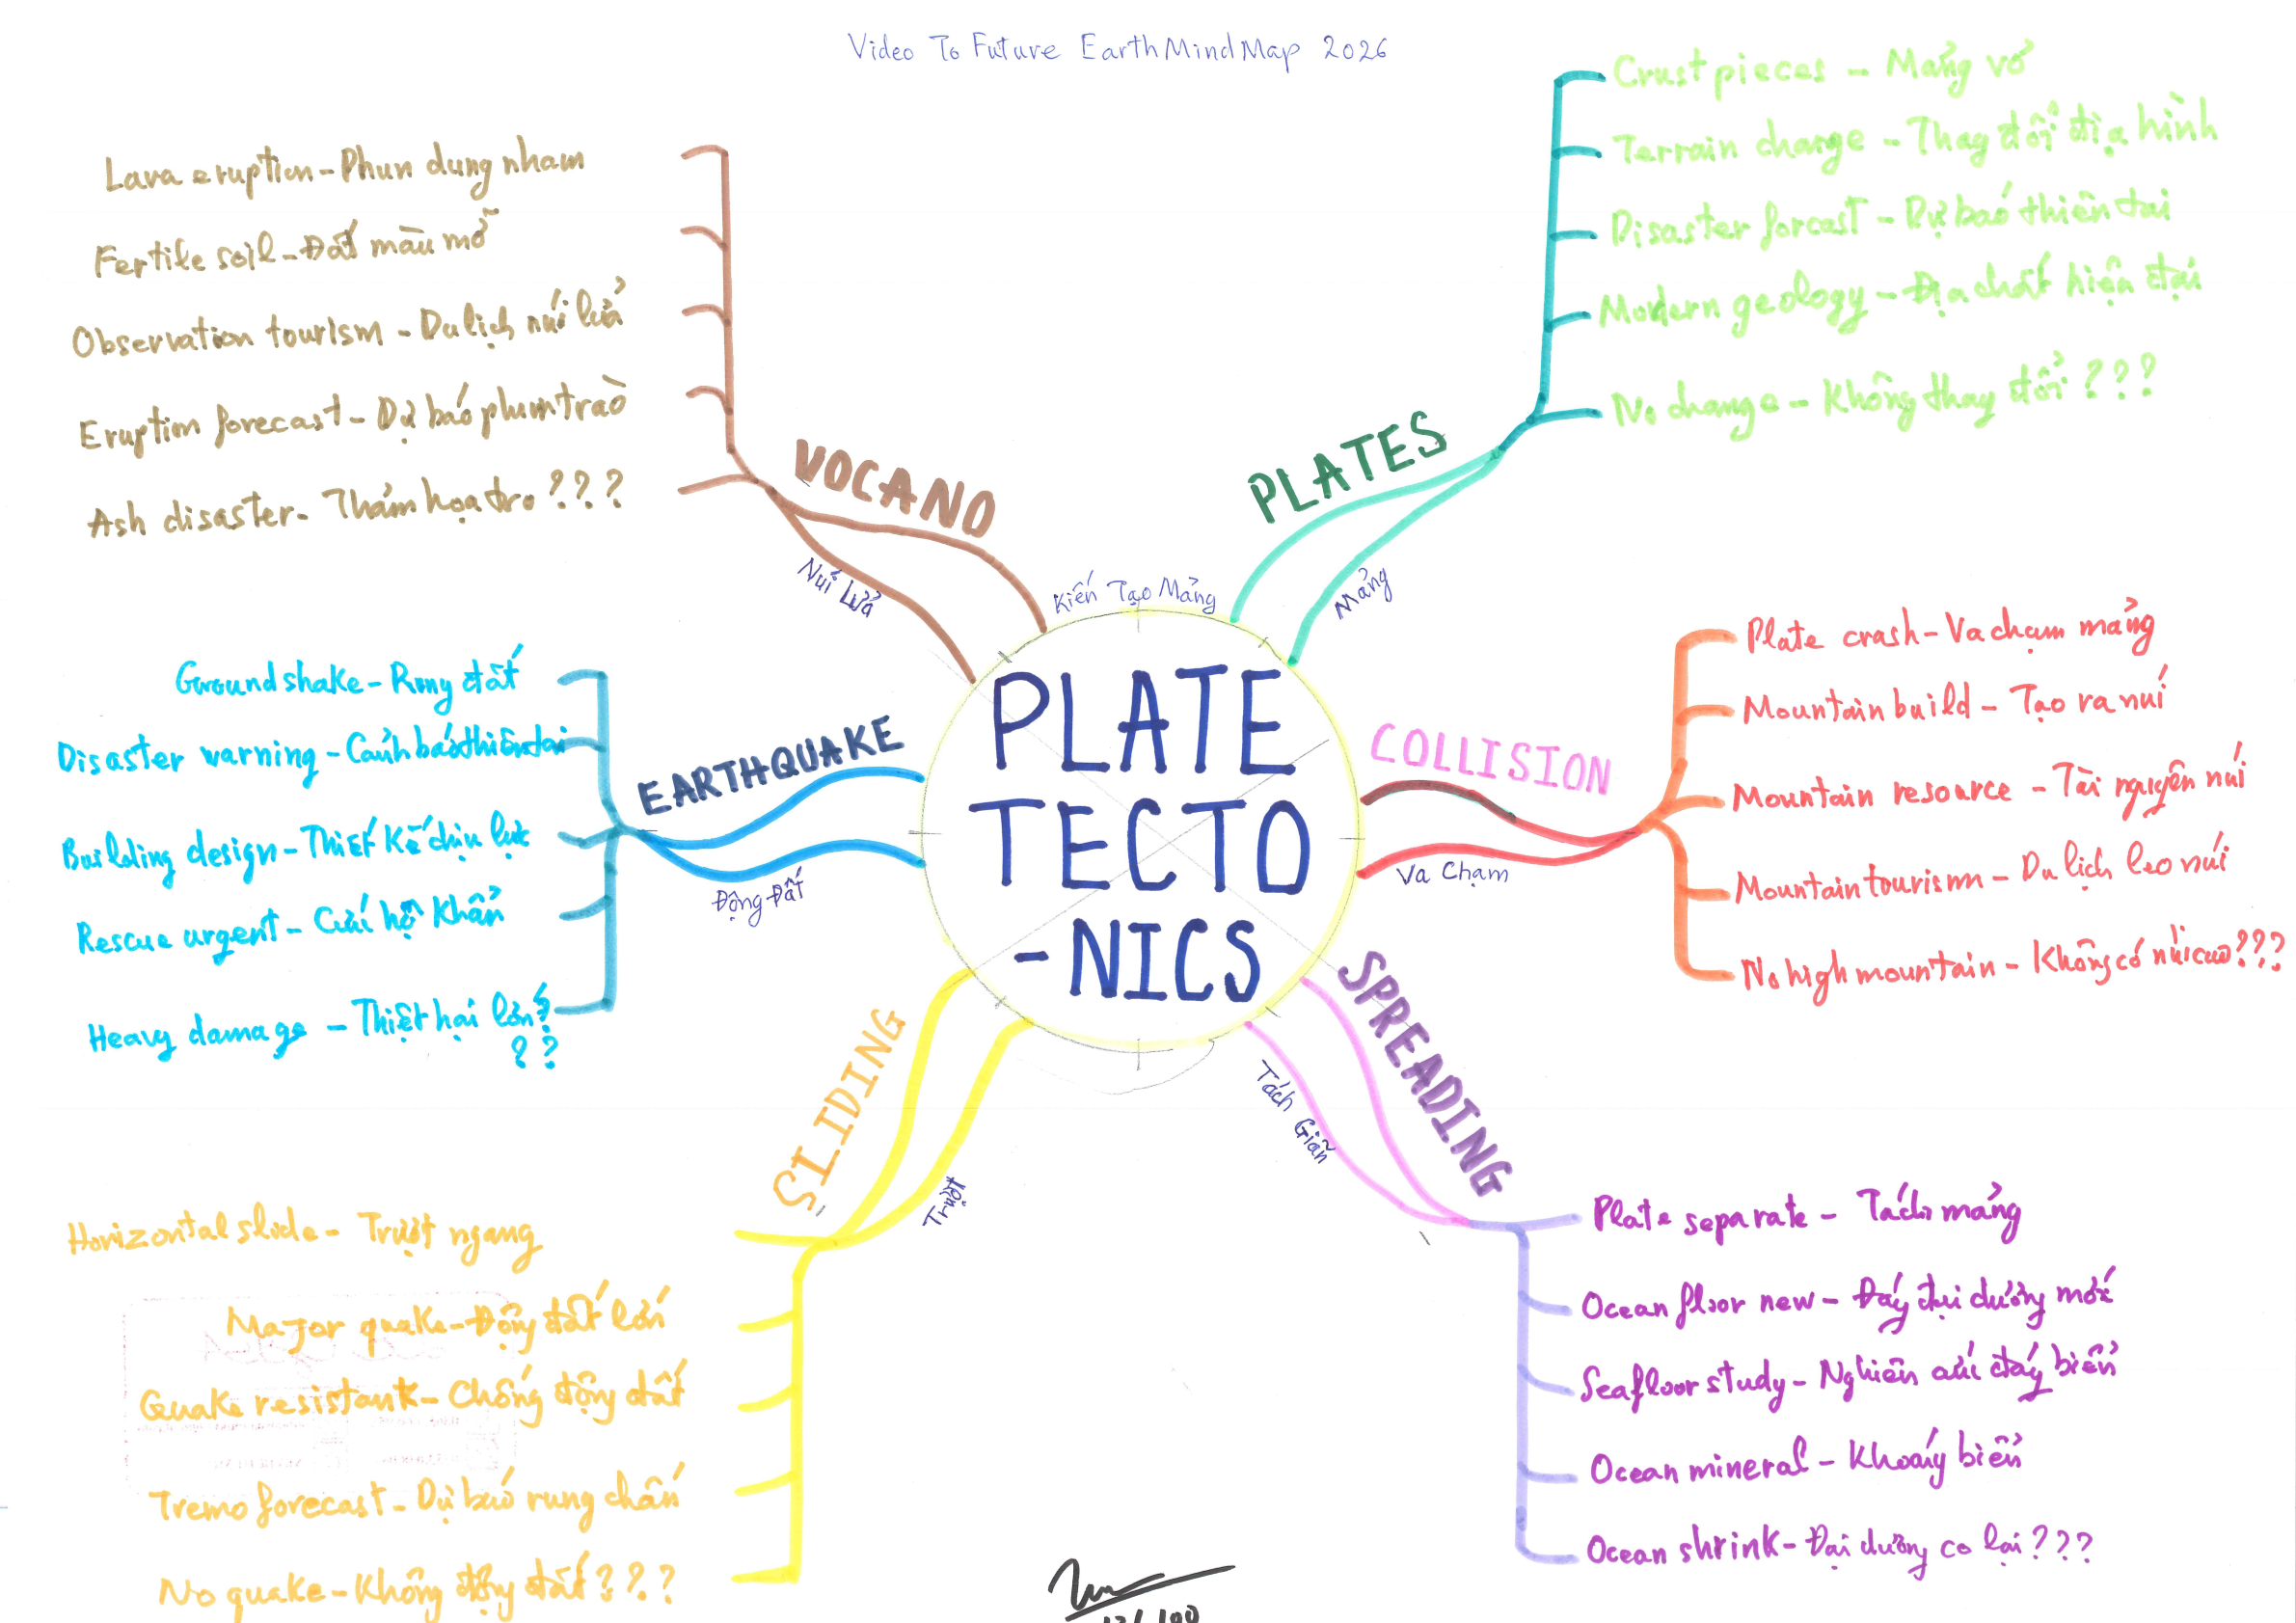 Video To Future Earth Mind Map 2026
Kiến Tạo Mảng
PLATE
TECTO
-NICS
PLATES
Mảng
Crust pieces - Mảng vỏ
Terrain change - Thay đổi địa hình
Disaster forcast - Dự báo thiên tai
Modern geology - Địa chất hiện đại
No change - Không thay đổi ???
COLLISION
Va Chạm
Plate crash - Va chạm mảng
Mountain build - Tạo ra núi
Mountain resource - Tài nguyên núi
Mountain tourism - Du lịch leo núi
No high mountain - Không có núi cao ???
SPREADING
Tách Giãn
Plate separate - Tách mảng
Ocean floor new - Đáy đại dương mới
Seafloor study - Nghiên cứu đáy biển
Ocean mineral - Khoáng biển
Ocean shrink - Đại dương co lại ???
SLIDING
Trượt
Horizontal slide - Trượt ngang
Major quake - Động đất lớn
Quake resistant - Chống động đất
Tremo forecast - Dự báo rung chấn
No quake - Không động đất ???
EARTHQUAKE
Động Đất
Ground shake - Rung đất
Disaster warning - Cảnh báo thiên tai
Building design - Thiết kế chịu lực
Rescue urgent - Cứu hộ khẩn
Heavy damage - Thiệt hại lớn ?
??
VOCANO
Núi Lửa
Lava eruption - Phun dung nham
Fertile soil - Đất màu mỡ
Observation tourism - Du lịch núi lửa
Eruption forecast - Dự báo phun trào
Ash disaster - Thảm họa tro ???